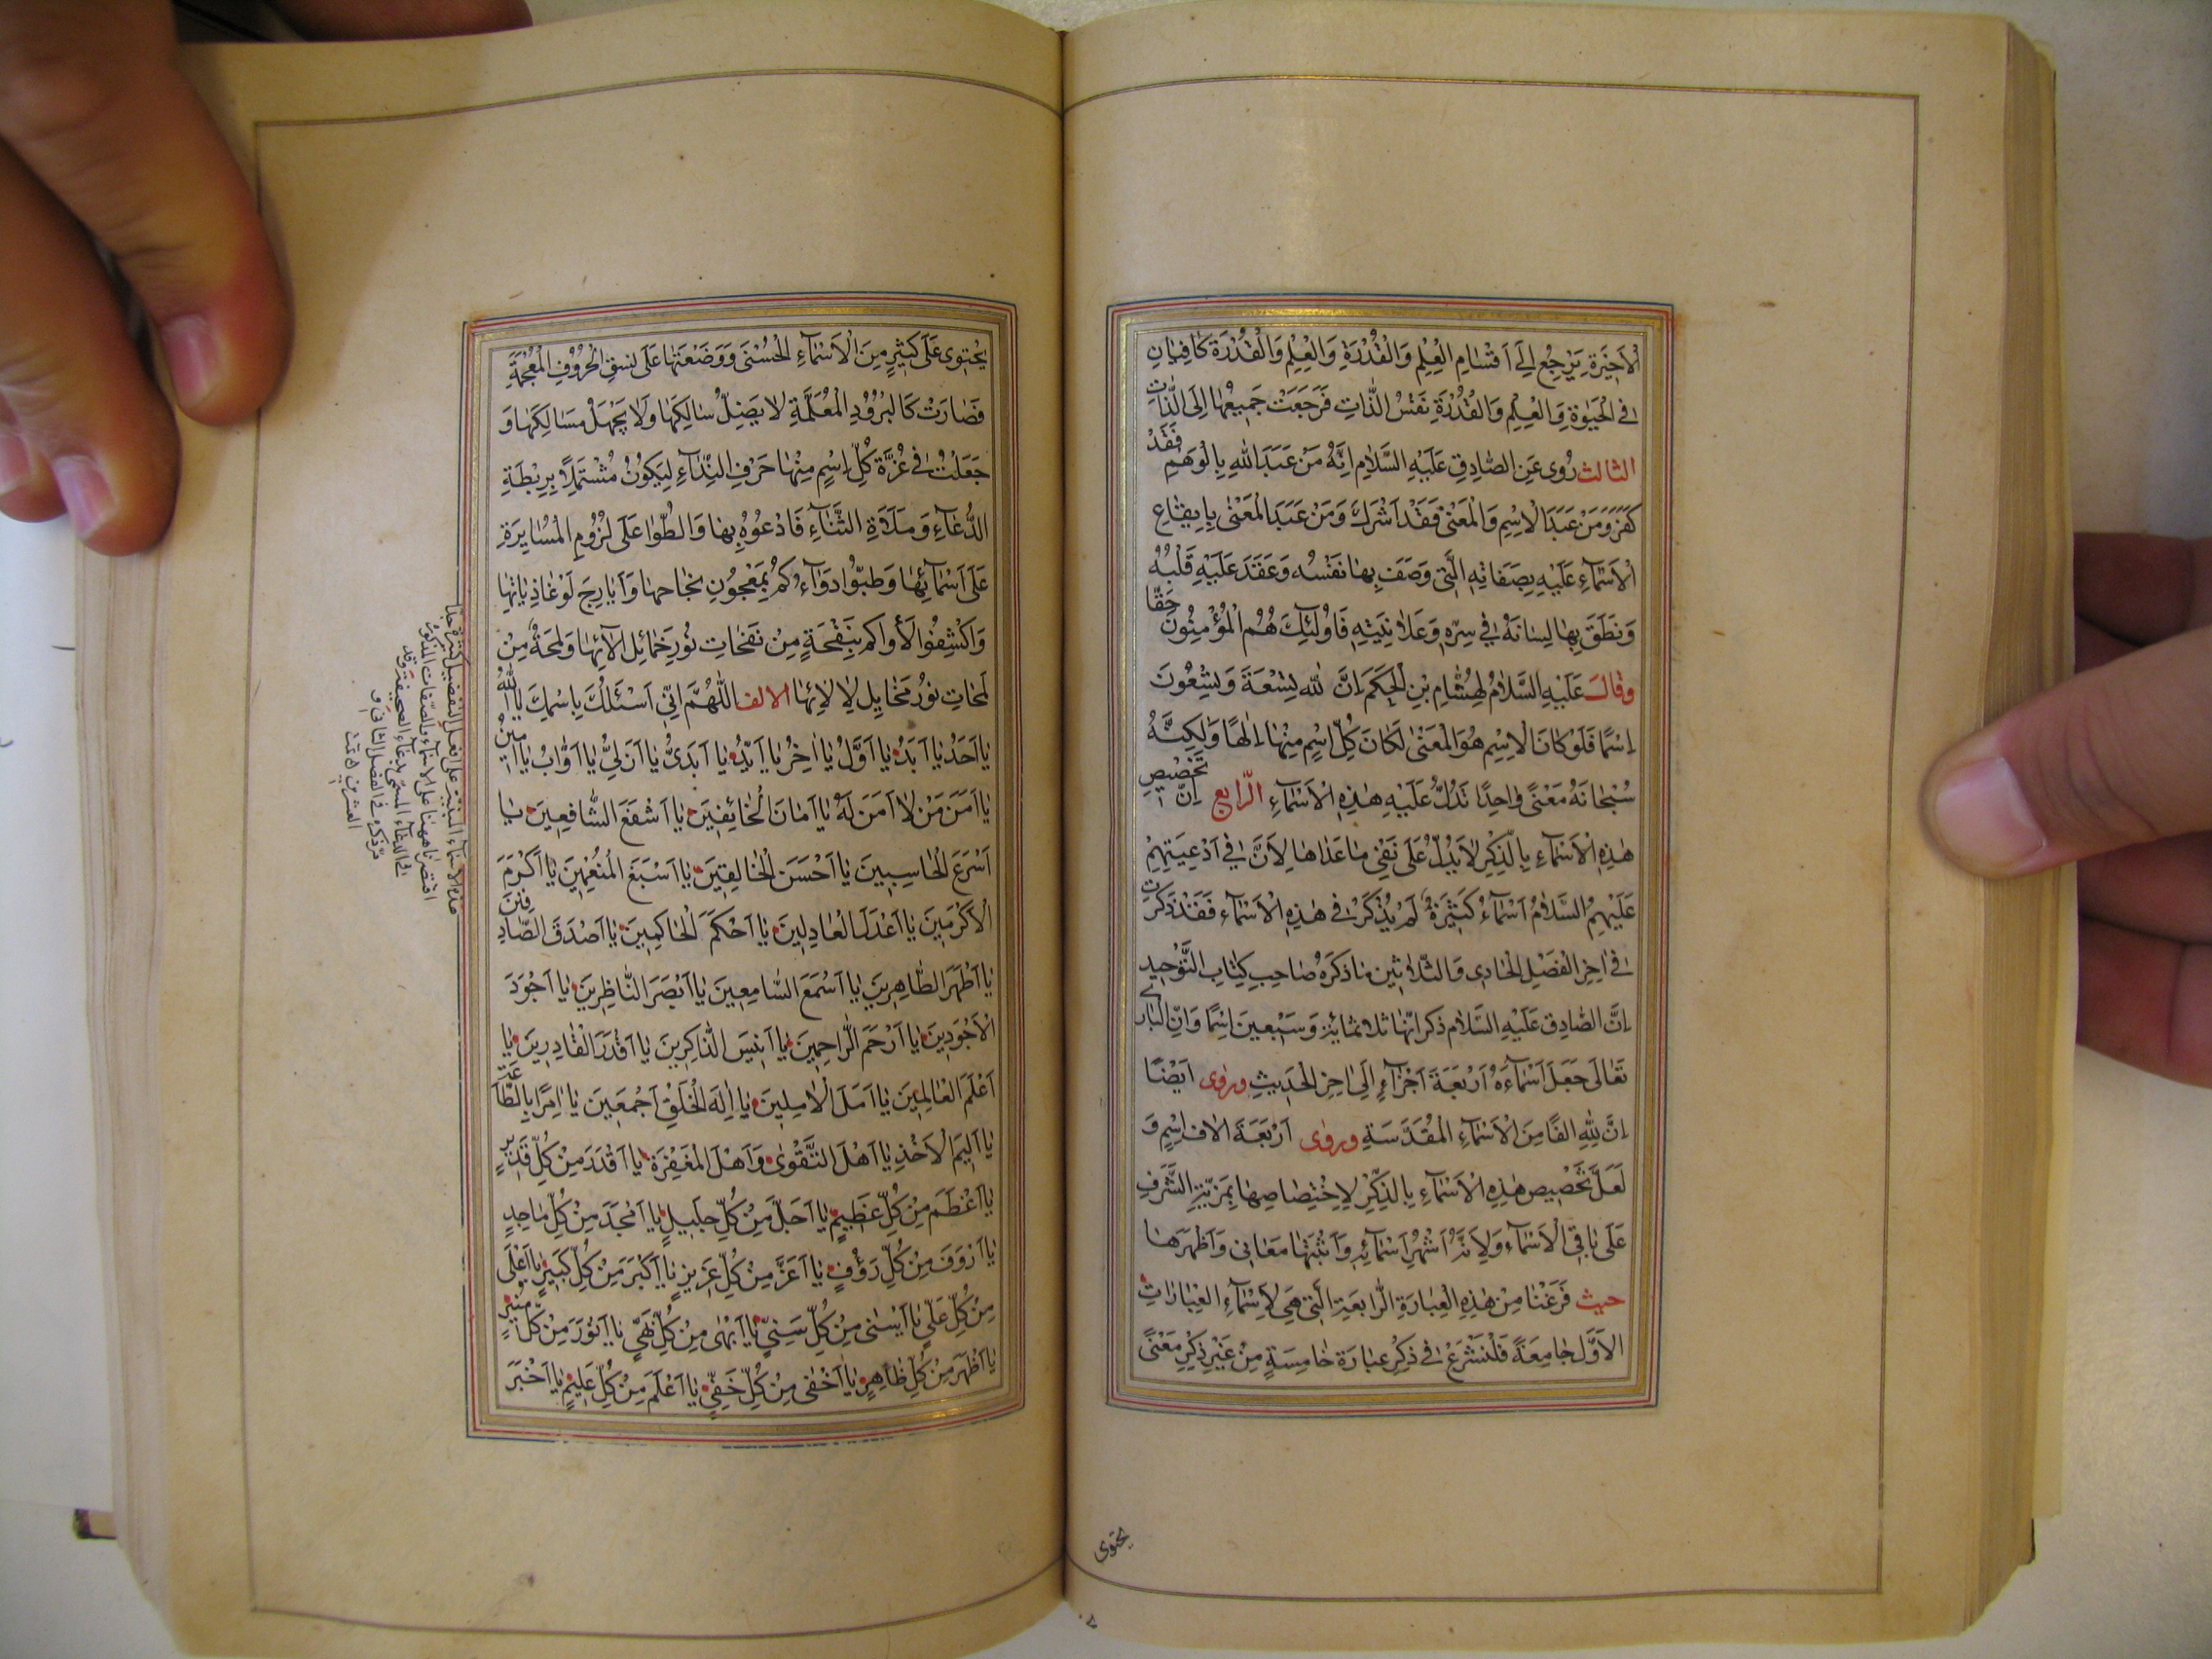 الْاَخِيرَةِ يَرْجِعُ اِلَى اَقْسَامِ الْعِلْمِ وَالْقُدْرَةِ وَالْعِلْمِ وَالْقُدْرَةُ كَافِيَانِ
فِى الْحَيٰوةِ وَالْعِلْمِ وَالْقُدْرَةِ نَفْسُ الذَّاتِ فَرَجَعَتْ جَمِيعُهَا اِلَى الذَّاتِ
الثالث رُوِىَ عَنِ الصَّادِقِ عَلَيْهِ السَّلَامُ اِنَّهُ مَنْ عَبَدَ اللهَ بِالْوَهْمِ فَقَدْ
كَفَرَ وَمَنْ عَبَدَ الْاِسْمَ وَالْمَعْنٰى فَقَدْ اَشْرَكَ وَمَنْ عَبَدَ الْمَعْنٰى بِاِيقَاعِ
الْاَسْمَآءِ عَلَيْهِ بِصِفَاتِهِ الَّتِى وَصَفَ بِهَا نَفْسُه وَعَقَدَ عَلَيْهِ قَلْبُهُ
وَنَطَقَ بِهَا لِسَانَهُ فِى سِرِّهِ وَعَلَانِيَتِهِ فَاُولٰٓئِكَ هُمُ الْمُؤْمِنُونَ حَقًّا
وقالَ عَلَيْهِ السَّلَامُ لِهِشَامِ بْنِ الْحَكَمِ اِنَّ لِلّٰهِ تِسْعَةً وَتِسْعُونَ
اِسْمًا فَلَوْ كَانَ الْاِسْمُ هُوَ الْمَعْنٰى لَكَانَ كُلُّ اِسْمٍ مِنْهَا اِلٰهًا وَلٰكِنَّهُ
سُبْحَانَهُ مَعْنًى وَاحِدًا تَدُلُّ عَلَيْهِ هٰذِهِ الْاَسْمَآءُ الرّابع اِنَّ تَخْصِيصِ
هٰذِهِ الْاَسْمَآءِ بِالذِّكْرِ لَا يَدُلُّ عَلَى نَفْىِ مَا عَدَاهَا لِاَنَّ فِى اَدْعِيَتِهِمْ
عَلَيْهِمُ السَّلَامُ اَسْمَآءُ كَثِيرَةُ لَمْ يُذْكَرْ فِى هٰذِهِ الْاَسْمَآءِ فَقَدْ ذَكَرْتُ
فِى اٰخِرِ الْفَصْلِ الْحَادِى وَالثَّلَاثِينَ مَا ذَكَرَهُ صَاحِبِ كِتَابِ التَّوْحِيدِ
اِنَّ الصَّادِقَ عَلَيْهِ السَّلَام ذكر اِنَّهَا ثلاثمائة وَسَبْعِينَ اِسْمًا وَاِنَّ الْبَارِى
تَعَالَى جَعَلَ اَسْمَآءَهُ اَرْبَعَةَ اَجْزَآءٍ اِلَى اٰخِرِ الْحَدِيثِ وروى اَيْضًا
اِنَّ لِلّٰهِ الْفًا مِنَ الْاَسْمَآءِ الْمُقَدَّسَةِ وروى اَرْبَعَةَ الَافِ اِسْمٍ وَ
لَعَلَّ تَخْصِيصِ هٰذِهِ الْاَسْمَآءِ بِالذِّكْرِ لِاِخْتِصَاصِهَا بِمَزِيَّةِ الشَّرَفِ
عَلَى بَاقِى الْاَسْمَآءِ وَلِاَنَّهَ اَشْهَرُ اَسْمَآئِهِ وَاَثْبَتَهَا مَعَانِى وَاَظْهَرَهَا
حيث فَرَغْنَا مِنْ هٰذِهِ الْعِبَارَةِ الرَّابِعَةِ الَّتِى هِىَ لِاَسْمَآءِ الْعِبَارَاتِ
الْاُوَّلِ جَامِعَةً فَلْنَشْرَعْ فِى ذِكْرِ عِبَارَةٍ خَامِسَةٍ مِنْ غَيْرِ ذِكْرِ مَعْنًى
يحتوى
يَحْتَوِى عَلَى كَثِيرٍ مِنَ الْاَسْمَآءِ الْحُسْنٰى وَوَضَعْتَهَا عَلَى نَسَقِ الْحُرُوْفِ الْمُعْجَمَةِ
فَصَارَتْ كَالْبُرُوْدِ الْمُعْلَمَةِ لَا يَضِلُّ سَالِكَهَا وَلَا يَجْهَلُ مَسَالِكَهَا وَ
جَعَلْتُ فِى غُرَّةِ كُلِّ اِسْمٍ مِنْهَا حَرْفَ النِّدَآءِ لِيَكُونُ مُشْتَمِلًا بِرِيْطَةِ
الدُّعَآءِ وَمُلَاءَةِ الثَّنَآءِ فَادْعُوْهُ بِهَا وَالظُّوْا عَلَى لُزُومِ الْمُسَايِرَةِ
عَلَى اَسْمَآئِهَا وَطِبُّوْا دَوَآءَكُمْ بِمَعْجُونِ نَجَاحِهَا وَاَيَارِجَ لَوْغَاذِيَاتِهَا
وَاكْشِفُوا لَأْوَاكُمْ بِنَفْحَةٍ مِنْ نَفَحَاتِ نُورِ خَمَائِلِ الْاٰئِهَا وَلَمْحَةٍ مِنْ
لَمَحَاتِ نُورِ مَخَايِلِ لِاَلَاءِهَا الالف اَللّٰهُمَّ اِنِّى اَسْئَلُكَ بِاسْمِكَ يَا اَللّٰهُ
يَا اَحَدُ يَا اَبَدُ يَا اَوَّلُ يَا اٰخِرُ يَا اَيِّدُ يَا اَبَدِىُّ يَا اَزَلِىُّ يَا اَوَّابُ يَا اَمِينُ
يَا اَمَنَ مَنْ لَا اَمَنَ لَهُ يَا اَمَانَ الْخَائِفِينَ يَا اَشْفَعَ الشَّافِعِينَ يَا
اَسْرَعَ الْحَاسِبِينَ يَا اَحْسَنَ الْخَالِقِينَ يَا اَسْبَغَ الْمُنْعِمِينَ يَا اَكْرَمَ
الْاَكْرَمِينَ يَا اَعْدَلَ الْعَادِلِينَ يَا اَحْكَمَ الْحَاكِمِينَ يَا اَصْدَقَ الصَّادِقِينَ
يَا اَطْهَرَ الطَّاهِرِينَ يَا اَسْمَعَ السَّامِعِينَ يَا اَبْصَرَ النَّاظِرِينَ يَا اَجْوَدَ
الْاَجْوَدِينَ يَا اَرْحَمَ الرَّاحِمِينَ يَا اَنِيسَ الذَّاكِرِينَ يَا اَقْدَرَ الْقَادِرِينَ يَا
اَعْلَمَ الْعَالِمِينَ يَا اَمَلَ الْاٰمِلِينَ يَا اِلٰهَ الْخَلْقِ اَجْمَعِينَ يَا اٰمِرًا بِالطَّاعَةِ
يَا اَلِيمَ الْاَخْذِ يَا اَهْلَ التَّقْوٰى وَاَهْلَ الْمَغْفِرَةِ يَا اَقْدَرَ مِنْ كُلِّ قَدِيرٍ
يَا اَعْظَمَ مِنْ كُلِّ عَظِيمٍ يَا اَجَلَّ مِنْ كُلِّ جَلِيلٍ يَا اَمْجَدَ مِنْ كُلِّ مَاجِدٍ
يَا اَرْوَفَ مِنْ كُلِّ رَؤُفٍ يَا اَعَزَّ مِنْ كُلِّ عَزِيزٍ يَا اَكْبَرَ مِنْ كُلِّ كَبِيرٍ يَا اَعْلَى
مِنْ كُلِّ عَلِىٍّ يَا اَسْنٰى مِنْ كُلِّ سَنِىٍّ يَا اَبْهٰى مِنْ كُلِّ بَهِىٍّ يَا اَنْوَرَ مِنْ كُلِّ مُنِيرٍ
يَا اَظْهَرَ مِنْ كُلِّ ظَاهِرٍ يَا اَخْفٰى مِنْ كُلِّ خَفِىٍّ يَا اَعْلَمَ مِنْ كُلِّ عَلِيمٍ يَا اَخْبَرَ
هذه الاسماء المبنية على افعل التفضيل كثيرة جدا
اقتصرنا ههنا على الاسماء والصفات المذكورة
فى الدعاء المسمى بدعاء الصحيفة وقد
مر ذكره فى الفصل الثانى و
العشرين